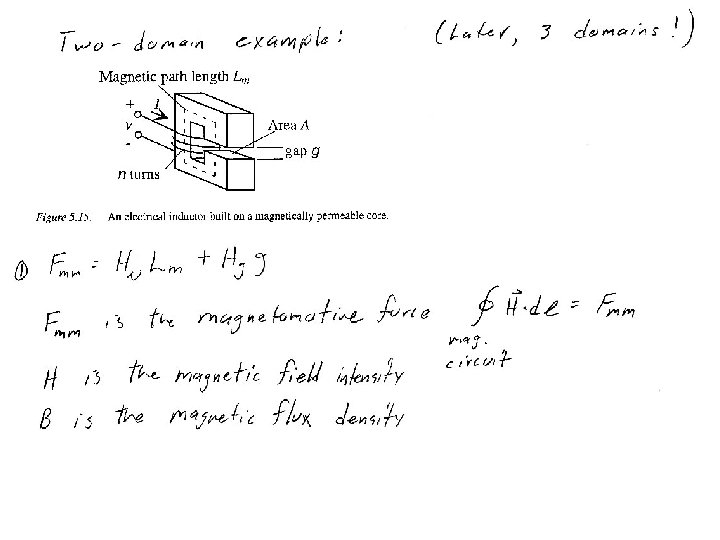 Two-domain example: (Later, 3 domains!)
Magnetic path length Lm
+ I
v
-
Area A
gap g
n turns
Figure 5.15. An electrical inductor built on a magnetically permeable core.
① Fmm = Hμ Lm + Hg g
Fmm is the magnetomotive force ∮ H⃗·dl = Fmm
mag.
circuit
H is the magnetic field intensity
B is the magnetic flux density